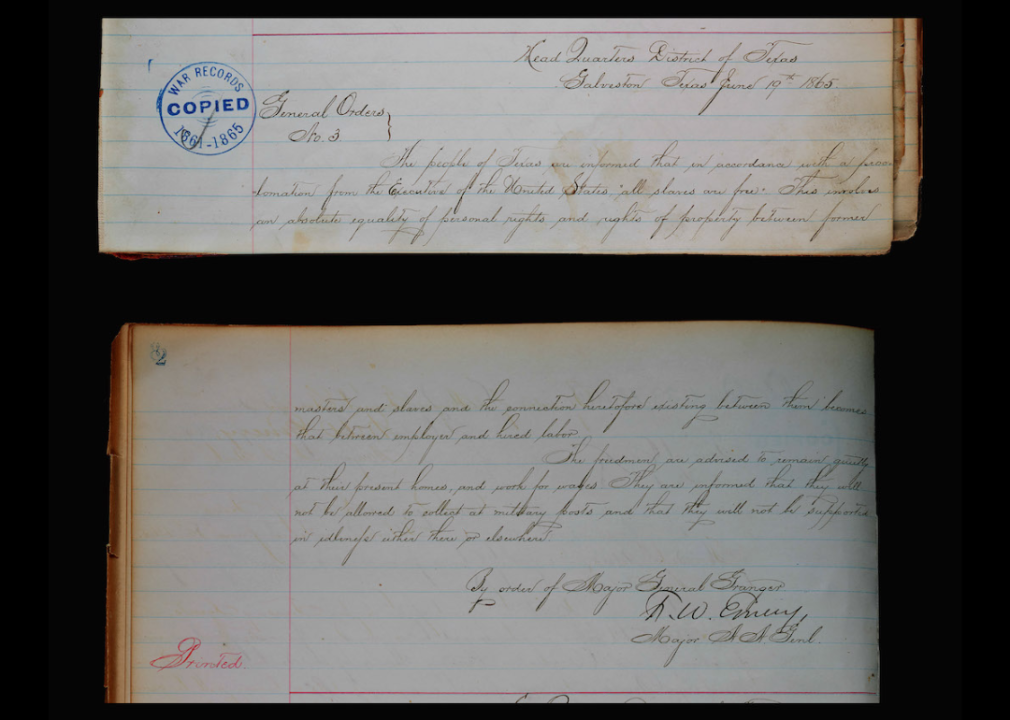 Head Quarters District of Texas
Galveston Texas June 19th 1865.
WAR RECORDS
COPIED
1861-1865
General Orders
No. 3
The people of Texas are informed that in accordance with a proc-
lamation from the Executive of the United States "all slaves are free." This involves
an absolute equality of personal rights and rights of property between former
2
masters and slaves and the connection heretofore existing between them becomes
that between employer and hired labor.
The freedmen are advised to remain quietly
at their present homes, and work for wages. They are informed that they will
not be allowed to collect at military posts and that they will not be supported
in idleness either there or elsewhere.
By order of Major General Granger
F. W. Emery,
Major A. A. Genl.
Printed.